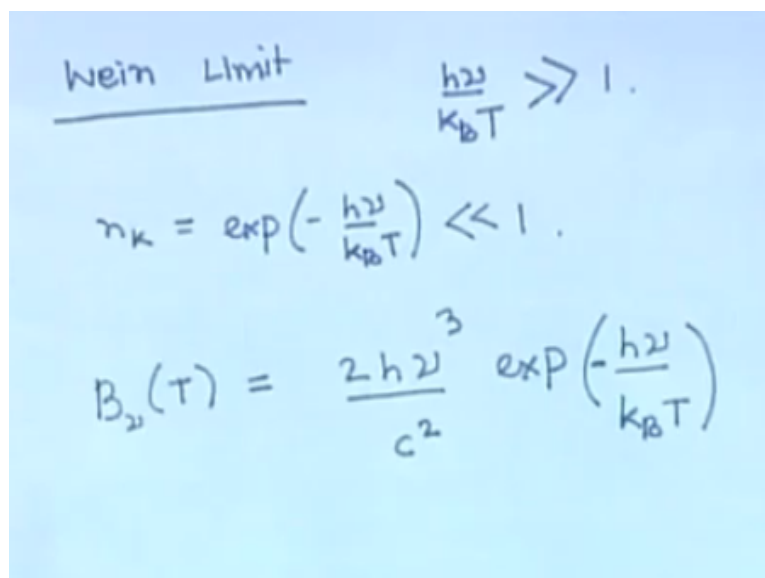 Wein Limit hν/k_BT >> 1.
n_K = exp(- hν/k_BT) << 1.
B_ν(T) = 2hν³/c² exp(- hν/k_BT)